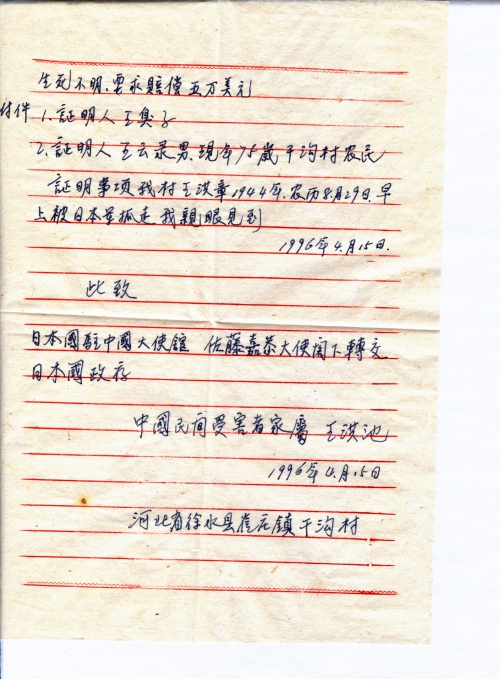 生死不明、要求賠偿五万美元
付件 1、証明人王臭子
2、証明人王云录男、現年75歲干沟村农民
証明事項我村王洪章1944年、农历8月29日早
上被日本军抓走我親眼見到
1996年4月15日.
此致
日本國駐中國大使館 佐藤嘉恭大使阁下轉交
日本國政府
中國民间受害者家屬 王洪池
1996年4月15日
河北省徐水县崔庄鎮干沟村